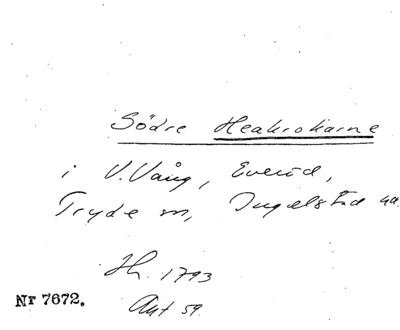 Södre Heakrokarne
i V. Vång, Everöd,
Tryde m, Ingelstad
Jh. 1793
Nr 7672.
Akt 59.